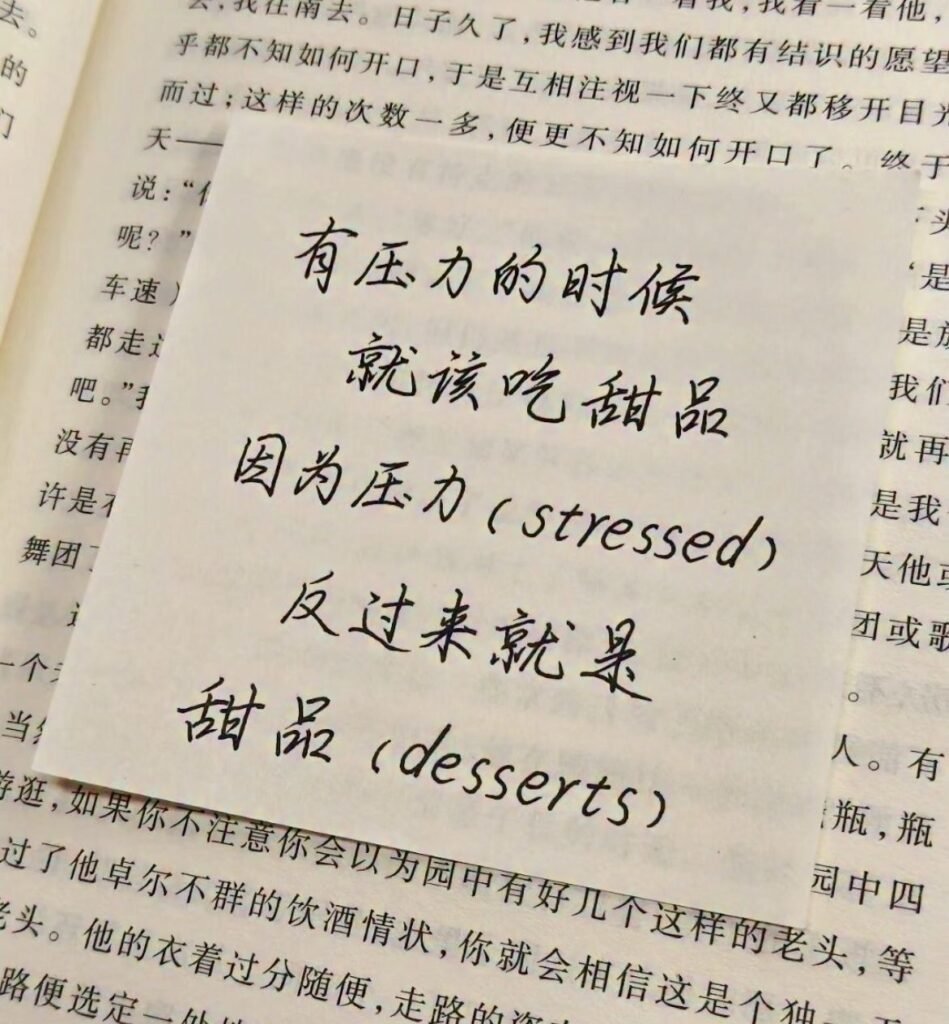 去。
的
们
去,我往南去。日子久了,我感到我们都有结识的愿望
乎都不知如何开口,于是互相注视一下终又都移开目光
而过;这样的次数一多,便更不知如何开口了。终于
天——
说:“
呢?”
车速
都走
吧。”我
没有再
许是
舞团
头
‘是
是放
我们
就再
是我
天他或
团或歌
。
有压力的时候
就该吃甜品
因为压力(stressed)
反过来就是
甜品(desserts)
一个
当然
人。有
瓶,瓶
游逛,如果你不注意你会以为园中有好几个这样的老头,等
园中四
过了他卓尔不群的饮酒情状,你就会相信这是个独一无
老头。他的衣着过分随便,走路的姿
路便选定一处地